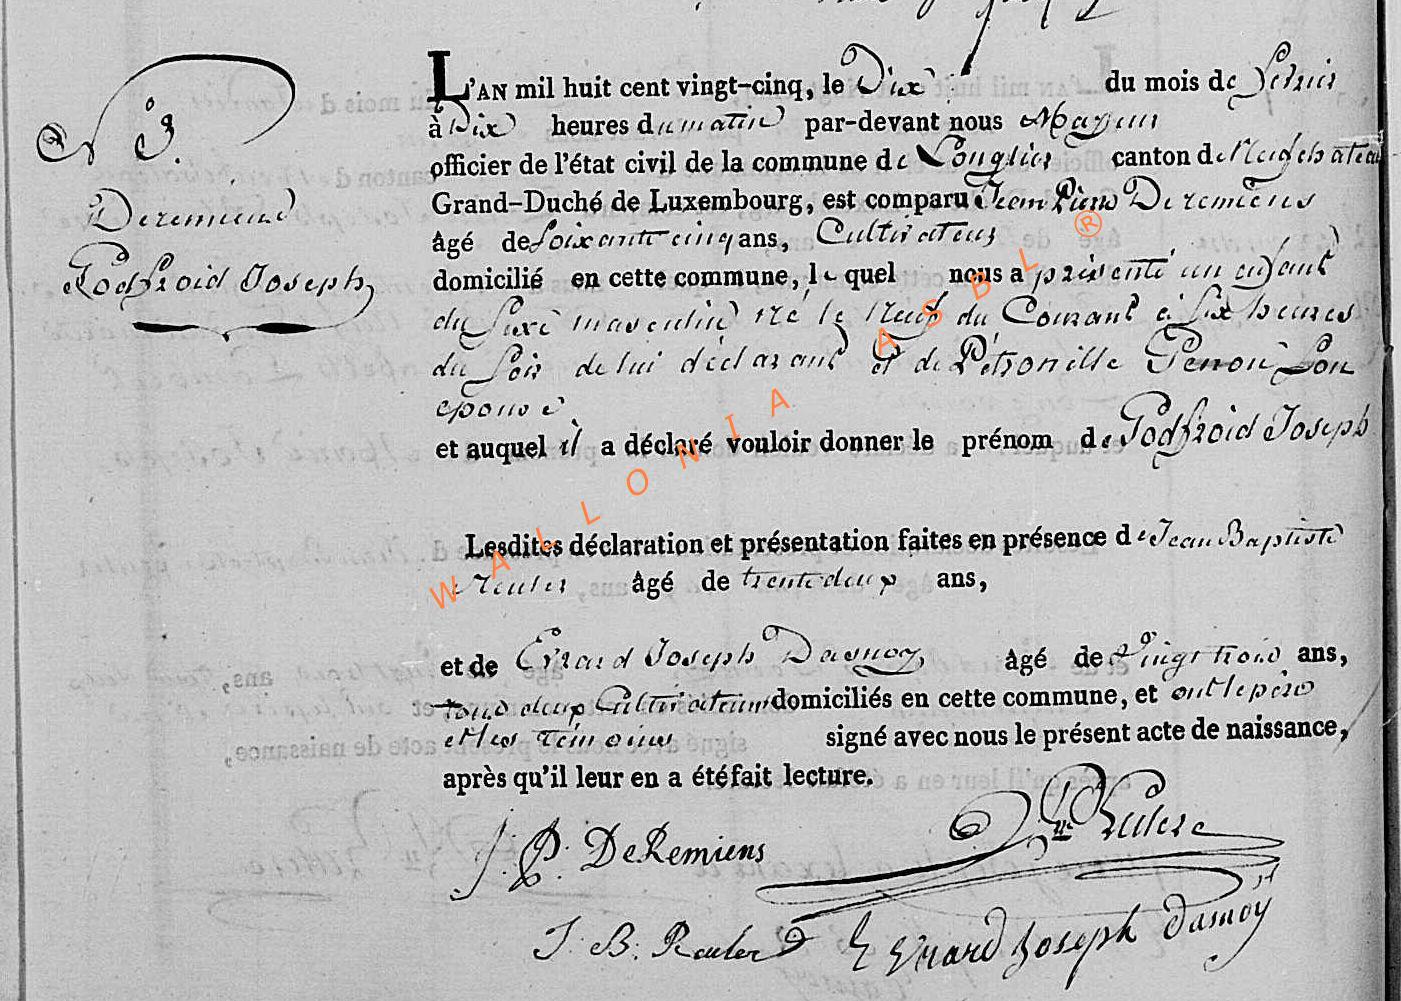 N° 3.
Deremiens
Godfroid Joseph
L'AN mil huit cent vingt-cinq, le Dix du mois de Février
à Dix heures du matin par-devant nous Mayeur
officier de l'état civil de la commune de Longlier canton de Neufchateau
Grand-Duché de Luxembourg, est comparu Jean Pierre Deremiens
âgé de soixante cinq ans, Cultivateur
domicilié en cette commune, le quel nous a présenté un enfant
du Sexe masculin né le Neuf du Courant à Six heures
du Soir de lui déclarant et de Pétronille Genon Son
epouse
et auquel il a déclaré vouloir donner le prénom de Godfroid Joseph
Lesdites déclaration et présentation faites en présence de Jean Baptiste
Reuler âgé de trente deux ans,
et de Evrard Joseph Dasnoy, âgé de Vingt trois ans,
tous deux Cultivateurs domiciliés en cette commune, et ont le père
et les témoins signé avec nous le présent acte de naissance,
après qu'il leur en a été fait lecture.
J. P. DeRemiens
J. B. Reuler
Evrard Joseph Dasnoy
WALLONIA ASBL ®